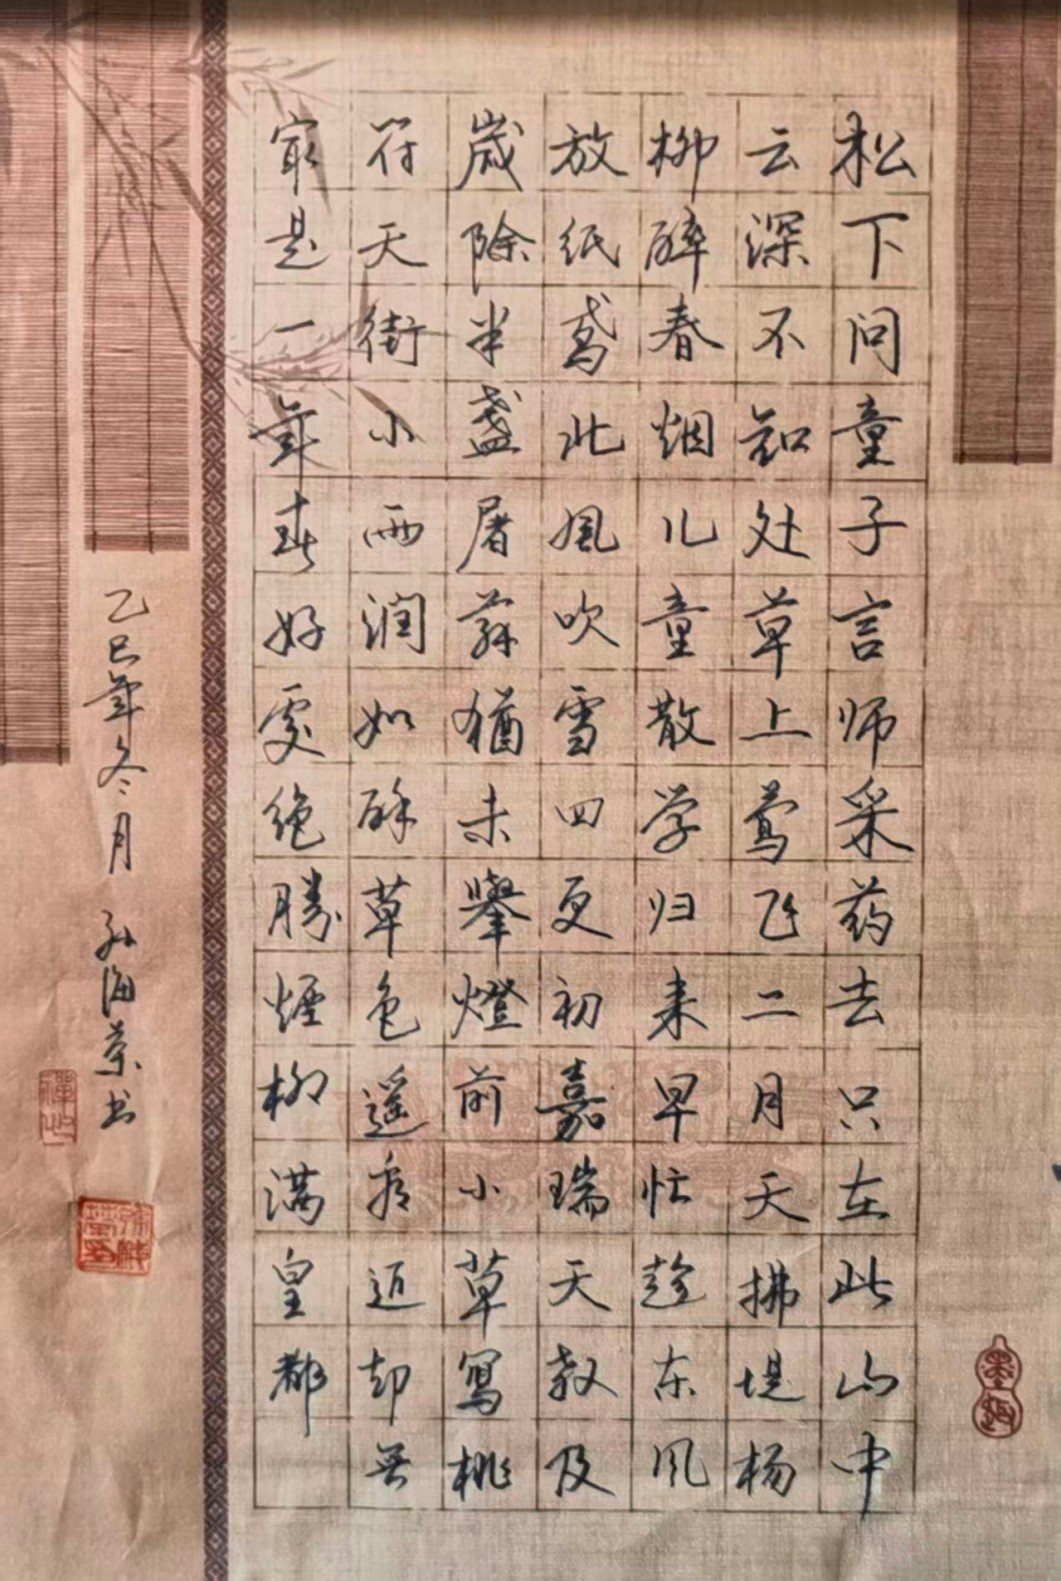 松下问童子言师采药去只在此山中
云深不知处草上莺飞二月天拂堤杨
柳醉春烟儿童散学归来早忙趁东风
放纸鸢北风吹雪四更初嘉瑞天教及
歲除半盏屠蘇猶未舉燈前小草寫桃
符天街小雨润如酥草色遥看近却無
最是一年春好處绝勝煙柳满皇都
乙巳年冬月 孙海荣书